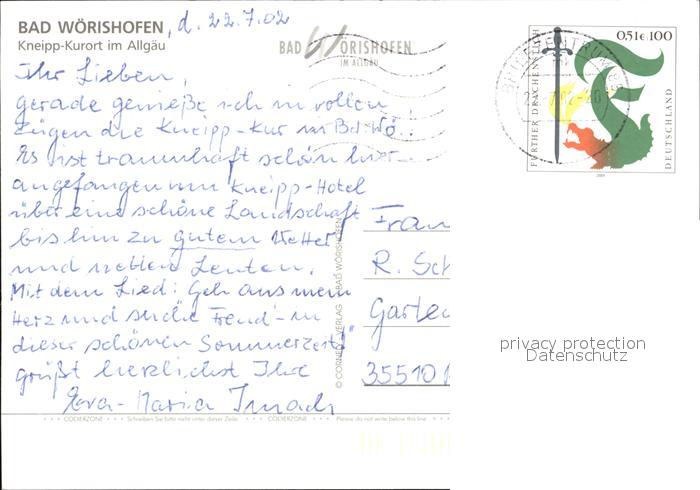 BAD WÖRISHOFEN, d. 22.7.02
Kneipp-Kurort im Allgäu
BAD WÖRISHOFEN
IM ALLGÄU
0,51€ 100
FURTHER DRACHENSTICH
DEUTSCHLAND
BRIEFZENTRUM
Ihr Lieben,
gerade genieße ich in vollen
Zügen die Kneipp-Kur in Bd. Wö.!
Es ist traumhaft schön hier -
angefangen vom Kneipp-Hotel
über eine schöne Landschaft
bis hin zu gutem Wetter
und netten Leuten.
Mit dem Lied: "Geh aus mein
Herz und suche Freud' - in
dieser schönen Sommerzeit"
grüßt herzlichst Ihre
Eva-Maria
Frau
R. Sch
Garten
35510
© CORNELY-VERLAG BAD WÖRISHOFEN
privacy protection
Datenschutz
CODIERZONE Schreiben Sie bitte nicht unter dieser Zeile CODIERZONE Please do not write below this line